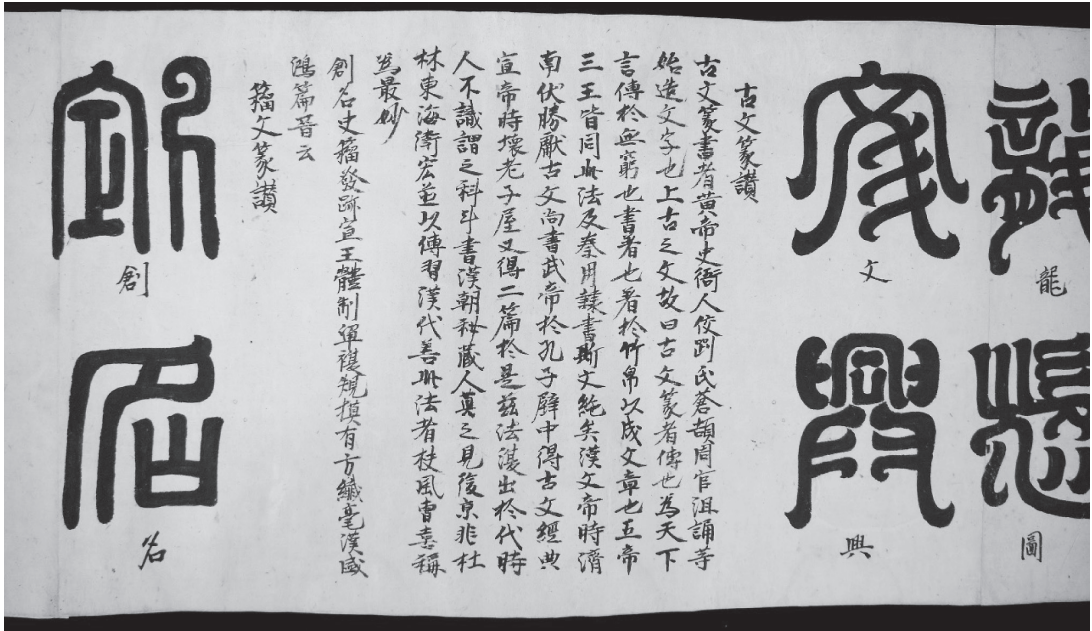 龍圖
文興
古文篆讚
古文篆書者黃帝史衙人佼㓟氏蒼頡周官沮誦等
始造文字也上古之文故曰古文篆者傳也為天下
言傳於無窮也書者也著於竹帛以成文章也五帝
三王皆同此法及秦用隷書斯文絶矣漢文帝時濟
南伏勝厭古文尚書武帝於孔子壁中得古文經典
宣帝時壞老子屋又得二篇於是茲法湛出於代時
人不識謂之科斗書漢朝祕藏人莫之見後京非杜
林東海衛宏並以傳習漢代善此法者扶風曹喜稱
為最妙
創名史籀發跡宣王體制單複規摸有方纎毫漢盛
鴻篇晉云
籀文篆讚
創名